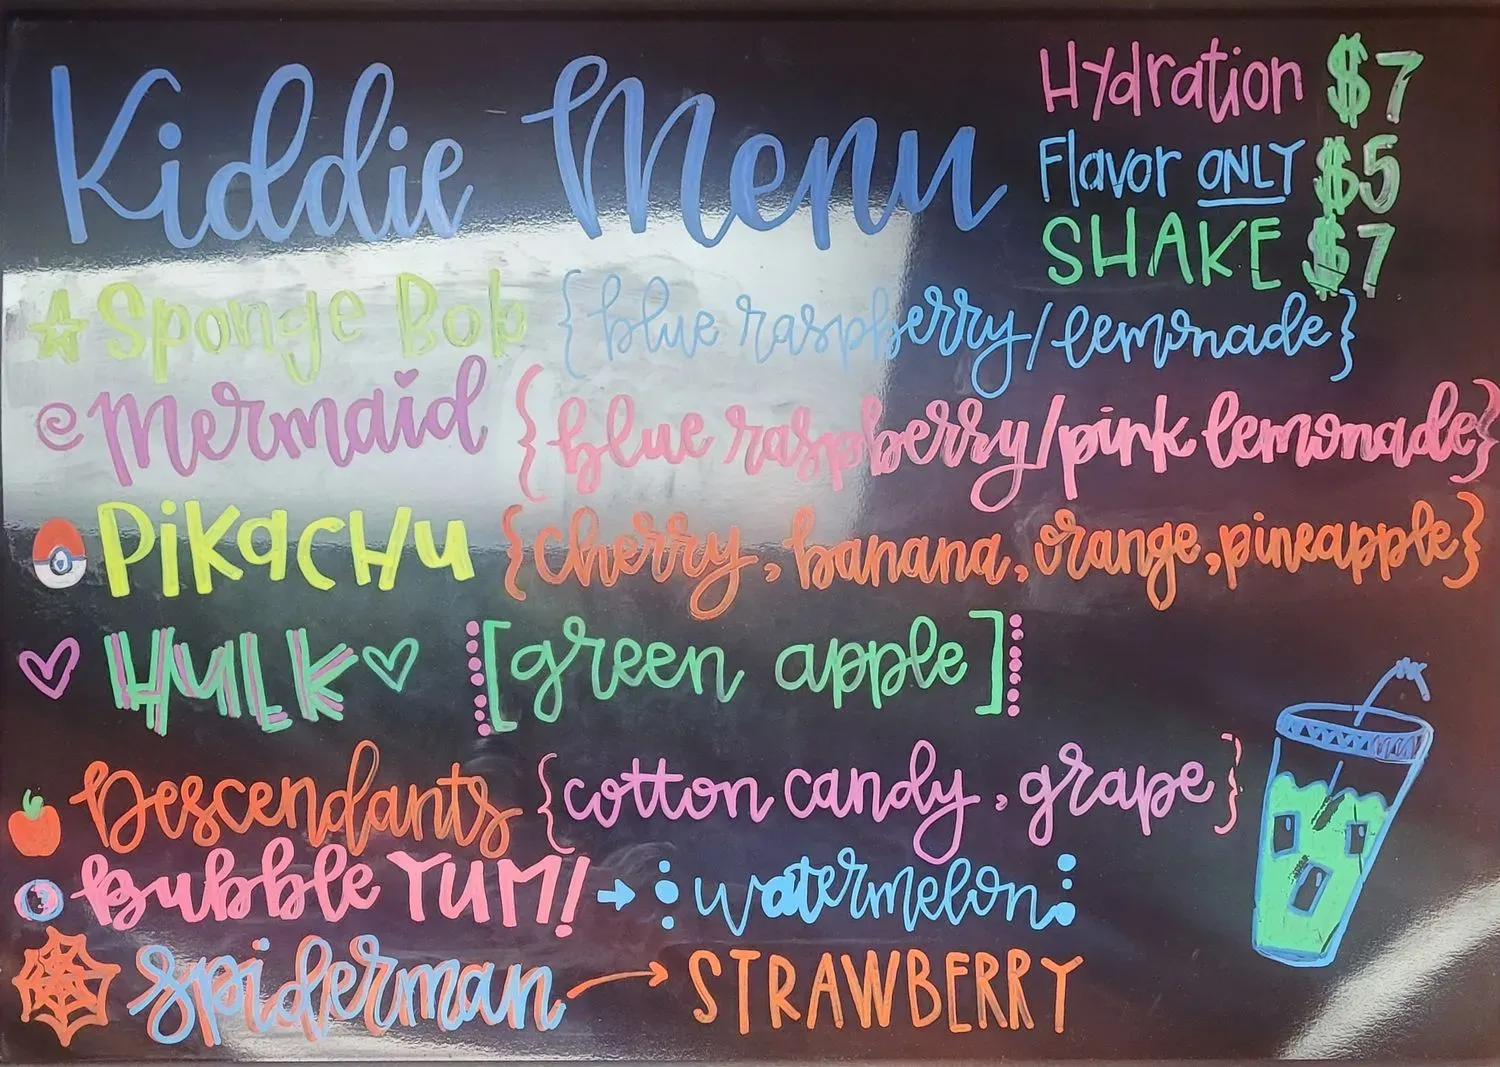 Kiddie Menu
Hydration $7
Flavor ONLY $5
SHAKE $7
Sponge Bob {blue raspberry/lemonade}
Mermaid {blue raspberry/pink lemonade}
PiKaCHu {cherry, banana, orange, pineapple}
HULK [green apple]
Descendants {cotton candy, grape}
Bubble YUM! → watermelon
Spiderman → STRAWBERRY